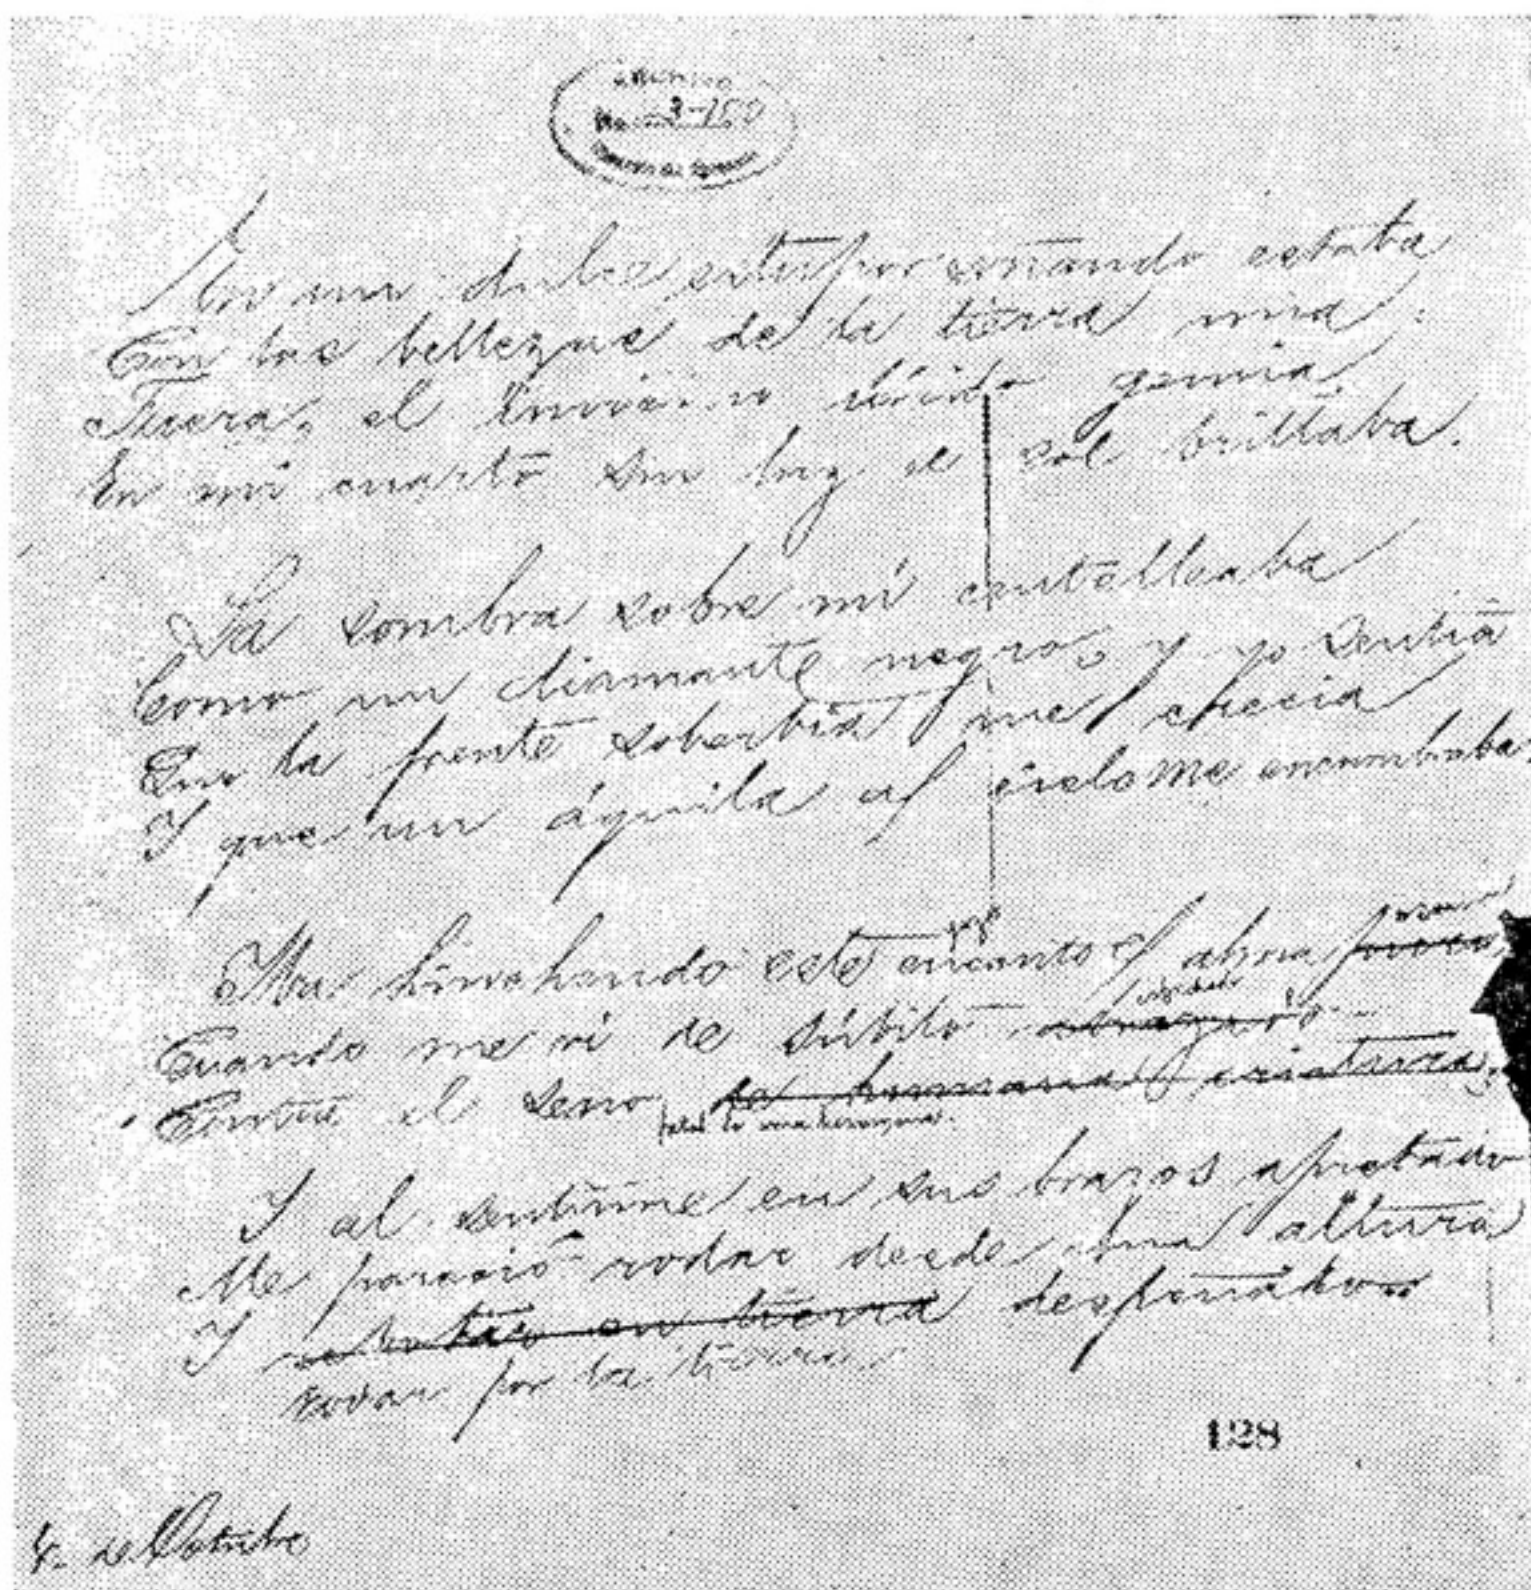 ARCHIVO
3-150
En un dulce estupor soñando estaba
Con las bellezas de la tierra mía:
Fuera, el invierno lívido gemía,
En mi cuarto sin luz el sol brillaba.
La sombra sobre mí centelleaba
Como un diamante negro, y yo sentía
Que la frente soberbia me crecía
Y que un águila al cielo me encumbraba.
gozo
Iba hinchando este encanto el alma
Cuando me vi de súbito
Contra el seno de humana criatura,
fatal de una hermosura.
Y al sentirme en sus brazos apretado
Me pareció rodar desde una altura
Y en tierra despeñado
rodar por la tierra
128
4. de Octubre